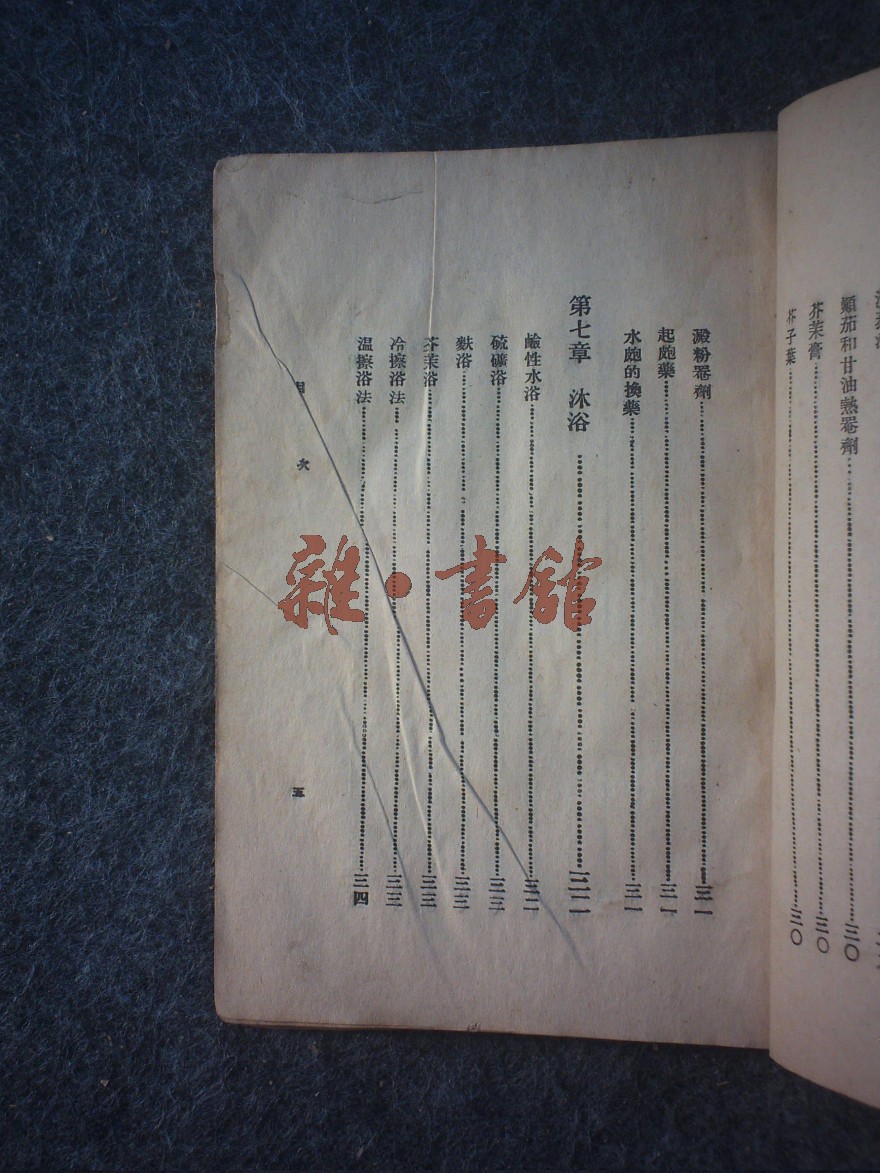 顚茄和甘油熱罨劑……三〇
芥茉膏……三〇
芥子葉……三〇
澱粉罨劑……三一
起皰藥……三一
水皰的換藥……三一
第七章 沐浴……三二
鹼性水浴……三二
硫礦浴……三三
麩浴……三三
芥茉浴……三三
冷擦浴法……三三
温擦浴法……三四
目次
五
雜·書館